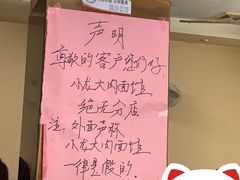 声明
尊敬的客户您们好.
小龙大肉面馆
绝无分店
注:外面声称
小龙大肉面馆
一律是假的.